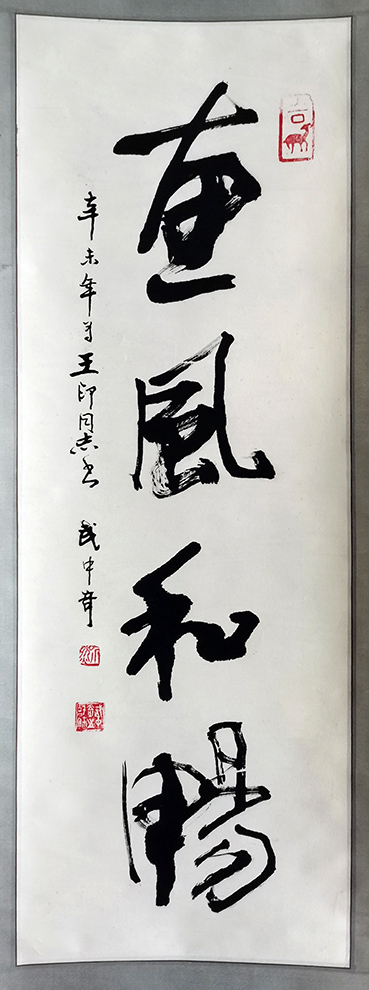 惠風和暢
辛未年为王印同志书 武中奇